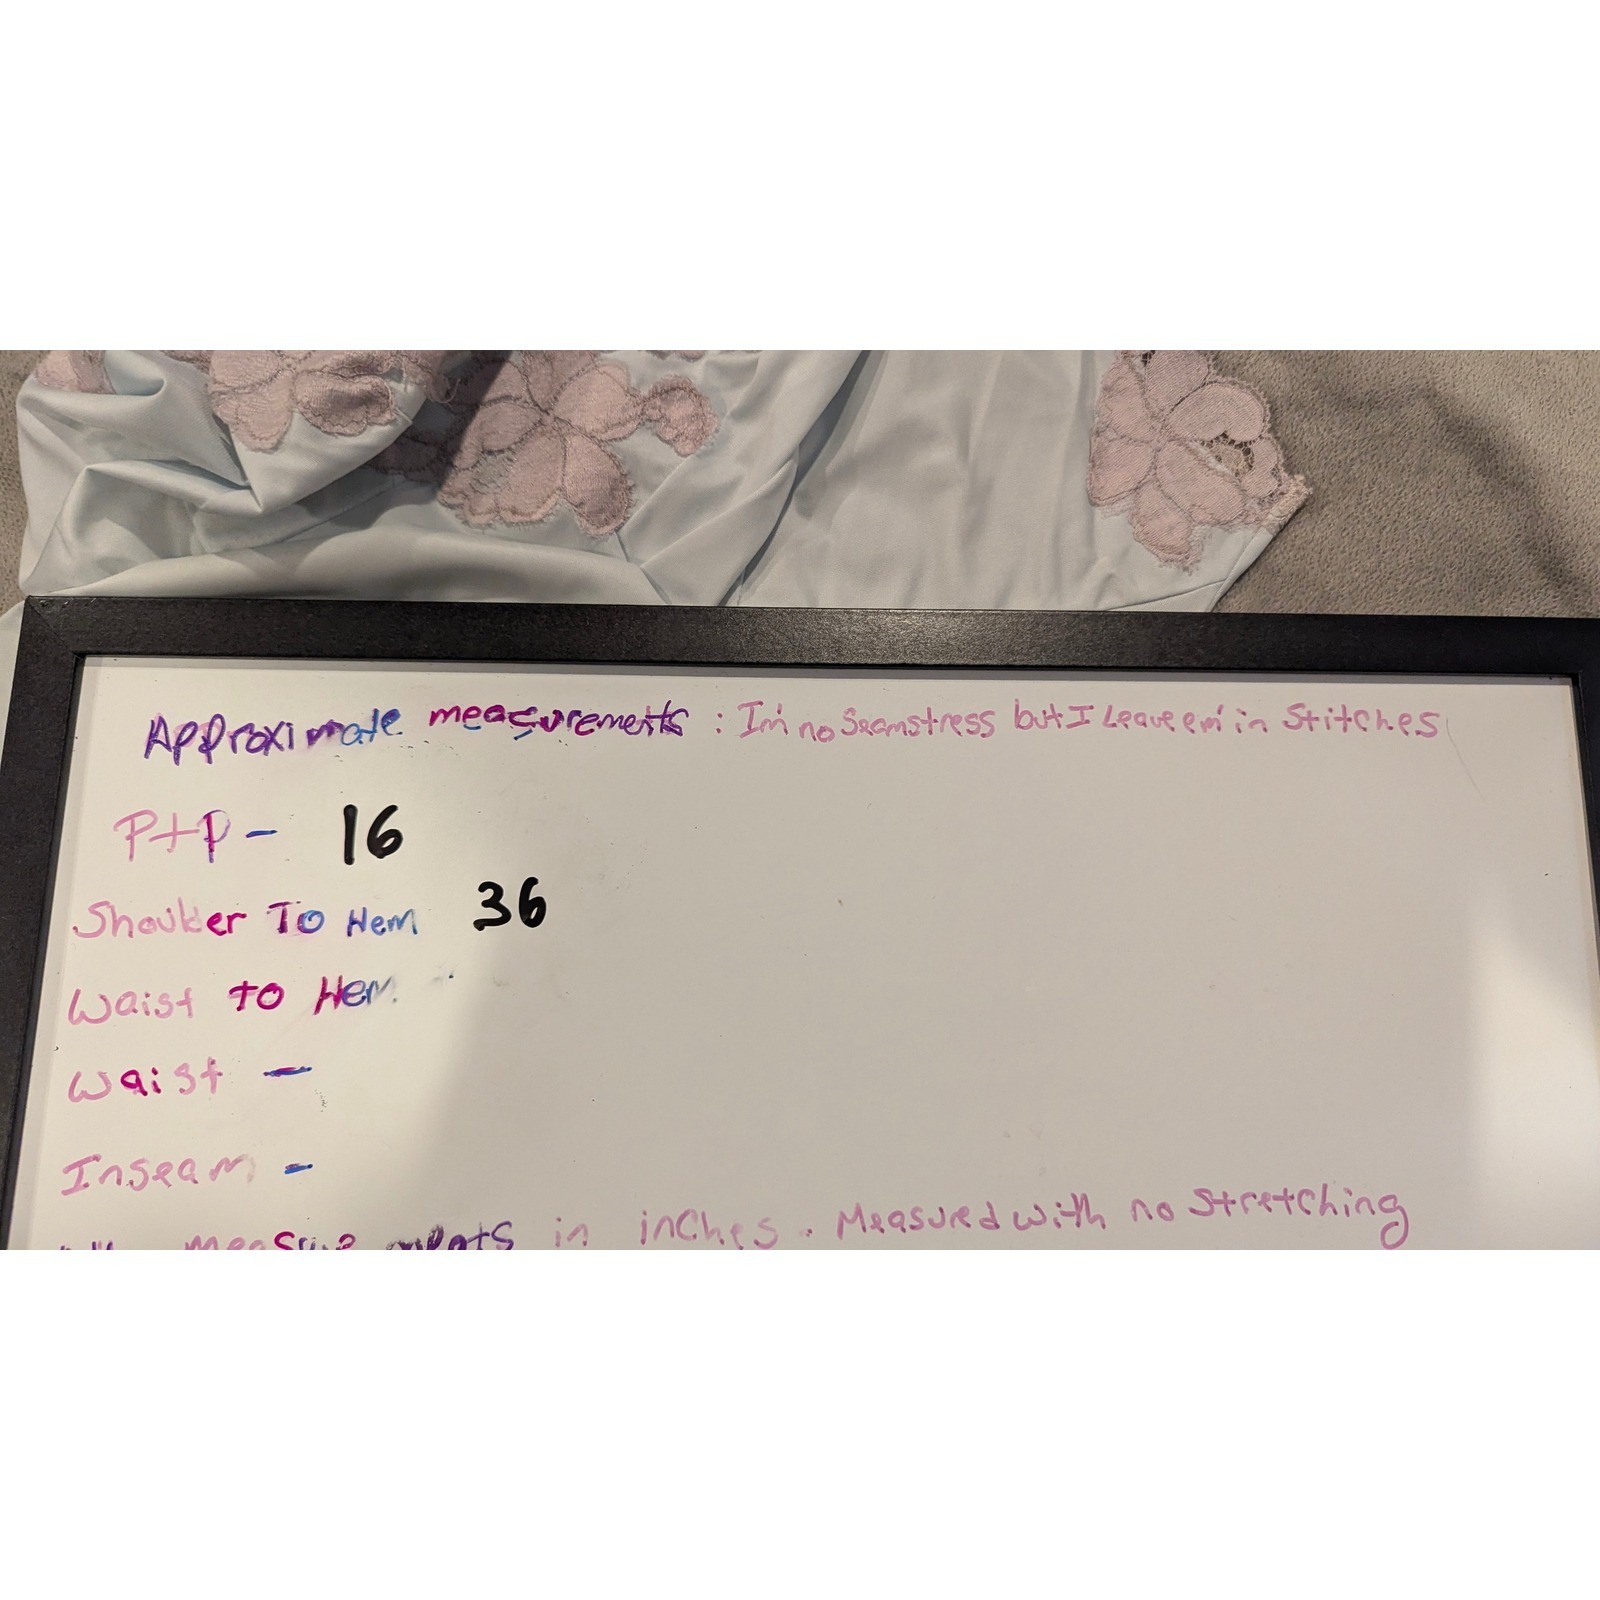 Approximate measurements : I'm no Seamstress but I Leave em' in Stitches
PtP - 16
Shoulder To Hem 36
Waist To Hem
Waist -
Inseam -
measurements in inches. Measured with no Stretching